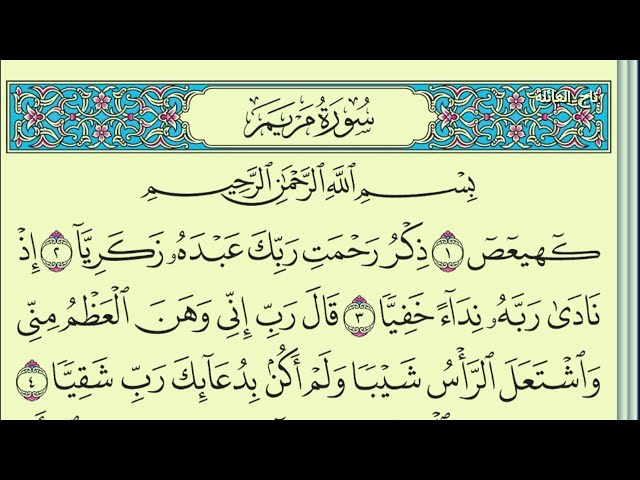 تاج_العائلة
سُورَةُ مَرْيَمَ
بِسْمِ ٱللَّهِ ٱلرَّحْمَٰنِ ٱلرَّحِيمِ
كٓهيعٓصٓ ١ ذِكْرُ رَحْمَتِ رَبِّكَ عَبْدَهُۥ زَكَرِيَّآ ٢ إِذْ
نَادَىٰ رَبَّهُۥ نِدَآءً خَفِيًّا ٣ قَالَ رَبِّ إِنِّى وَهَنَ ٱلْعَظْمُ مِنِّى
وَٱشْتَعَلَ ٱلرَّأْسُ شَيْبًا وَلَمْ أَكُنۢ بِدُعَآئِكَ رَبِّ شَقِيًّا ٤